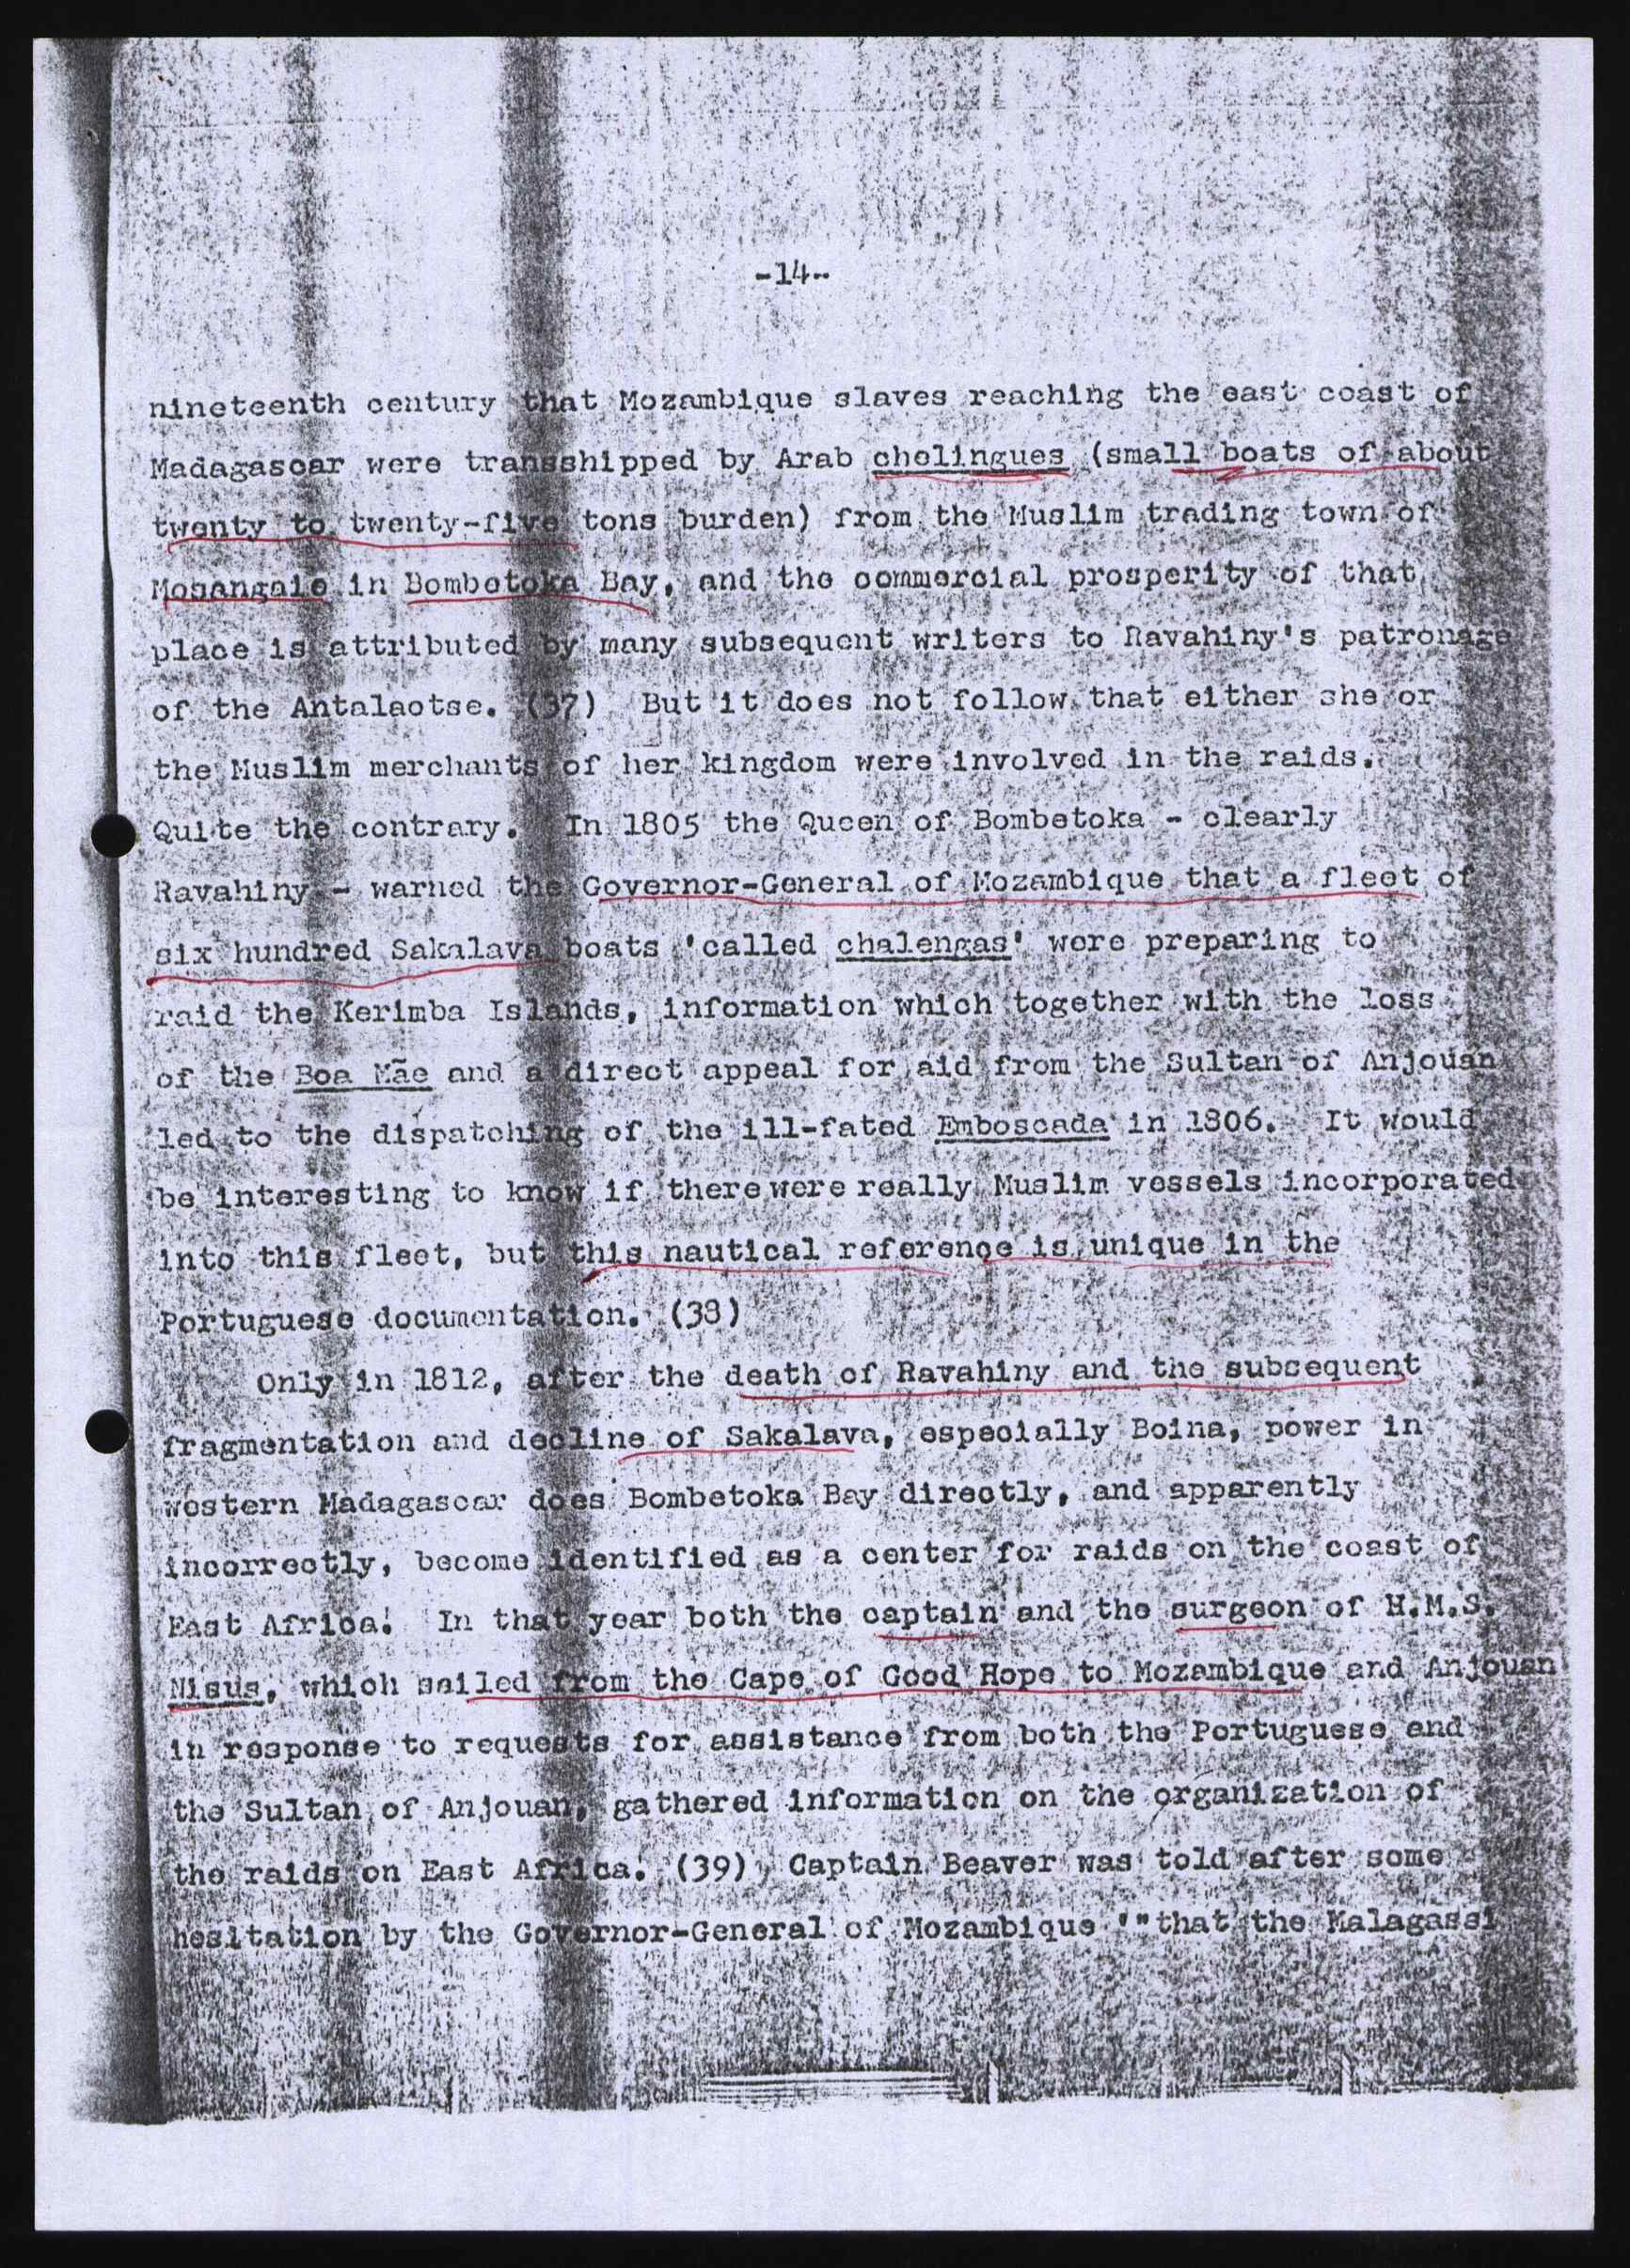 -14-
nineteenth century that Mozambique slaves reaching the east coast of
Madagascar were transshipped by Arab chelingues (small boats of about
twenty to twenty-five tons burden) from the Muslim trading town of
Mosangaie in Bombetoka Bay, and the commercial prosperity of that
place is attributed by many subsequent writers to Ravahiny's patronage
of the Antalaotse. (37) But it does not follow that either she or
the Muslim merchants of her kingdom were involved in the raids.
Quite the contrary. In 1805 the Queen of Bombetoka - clearly
Ravahiny - warned the Governor-General of Mozambique that a fleet of
six hundred Sakalava boats 'called chalengas' were preparing to
raid the Kerimba Islands, information which together with the loss
of the Boa Mãe and a direct appeal for aid from the Sultan of Anjouan
led to the dispatching of the ill-fated Emboscada in 1806. It would
be interesting to know if there were really Muslim vessels incorporated
into this fleet, but this nautical reference is unique in the
Portuguese documentation. (38)
Only in 1812, after the death of Ravahiny and the subsequent
fragmentation and decline of Sakalava, especially Boina, power in
western Madagascar does Bombetoka Bay directly, and apparently
incorrectly, become identified as a center for raids on the coast of
East Africa. In that year both the captain and the surgeon of H.M.S.
Nisus, which sailed from the Cape of Good Hope to Mozambique and Anjouan
in response to requests for assistance from both the Portuguese and
the Sultan of Anjouan, gathered information on the organization of
the raids on East Africa. (39) Captain Beaver was told after some
hesitation by the Governor-General of Mozambique '"that the Malagassi